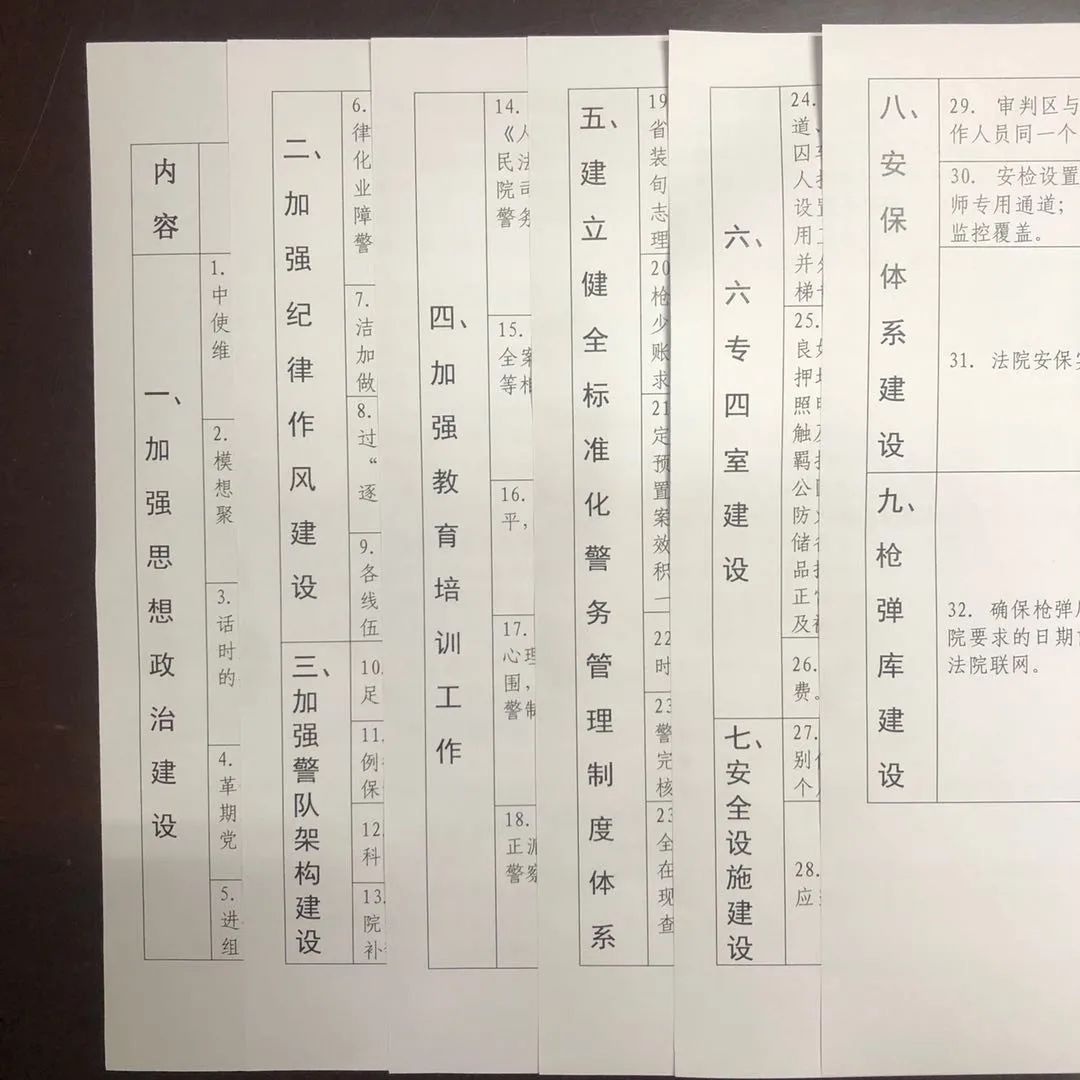 内容
一、加强思想政治建设
1.
中
使
维
2.
模
想
聚
3.
话
时
的
4.
革
期
党
5.
进
组
二、加强纪律作风建设
6.
律
化
业
障
警
7.
洁
加
做
8.
过
“
逐
9.
各
线
伍
三、加强警队架构建设
10.
足
11.
例
保
12
科
13.
院
补
四、加强教育培训工作
14.
《人
民法
院司
警务
15.
全案
等相
16.
平，
17.
心理
围，
警制
18.
正派
警察
五、建立健全标准化警务管理制度体系
19
省
装
旬
志
理
20
枪
少
账
求
21
定
预
置
案
效
积
一
22
时
23
警
完
核
23
全
在
现
查
六、六专四室建设
24.
道、
囚车
人
设置
用
并
梯
25.
良好
押
照明
触及
羁
公
防火
储
品
正常
及
26.
费。
七、安全设施建设
27.
别
个
28.
应
八、安保体系建设
29. 审判区与
作人员同一个
30. 安检设置
师专用通道；
监控覆盖。
31. 法院安保
九、枪弹库建设
32. 确保枪弹
院要求的日期
法院联网。